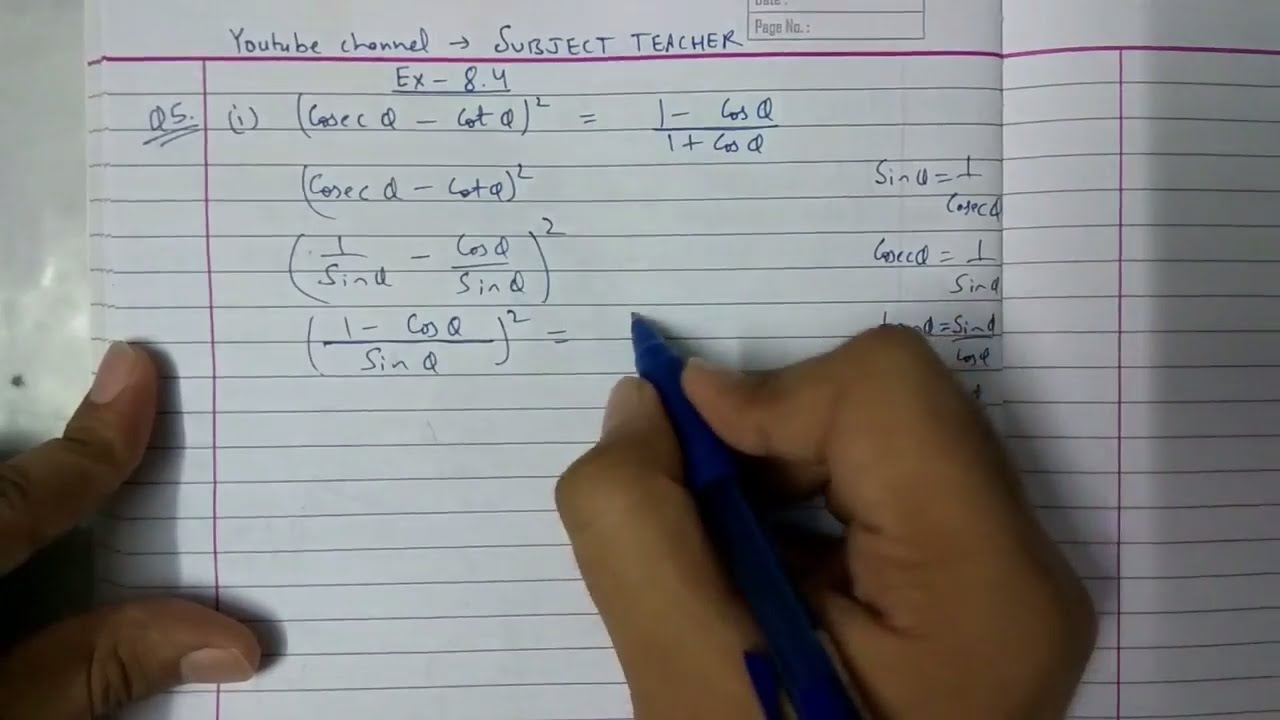 Date :
Page No. :
Youtube channel → SUBJECT TEACHER
Ex - 8.4
Q5. (i) (Cosec θ - Cot θ)² = 1 - Cos θ / 1 + Cos θ
(Cosec θ - Cot θ)²
(1 / Sin θ - Cos θ / Sin θ)²
(1 - Cos θ / Sin θ)² =
Sin θ = 1 / Cosec θ
Cosec θ = 1 / Sin θ
θ = Sin θ / Cos θ